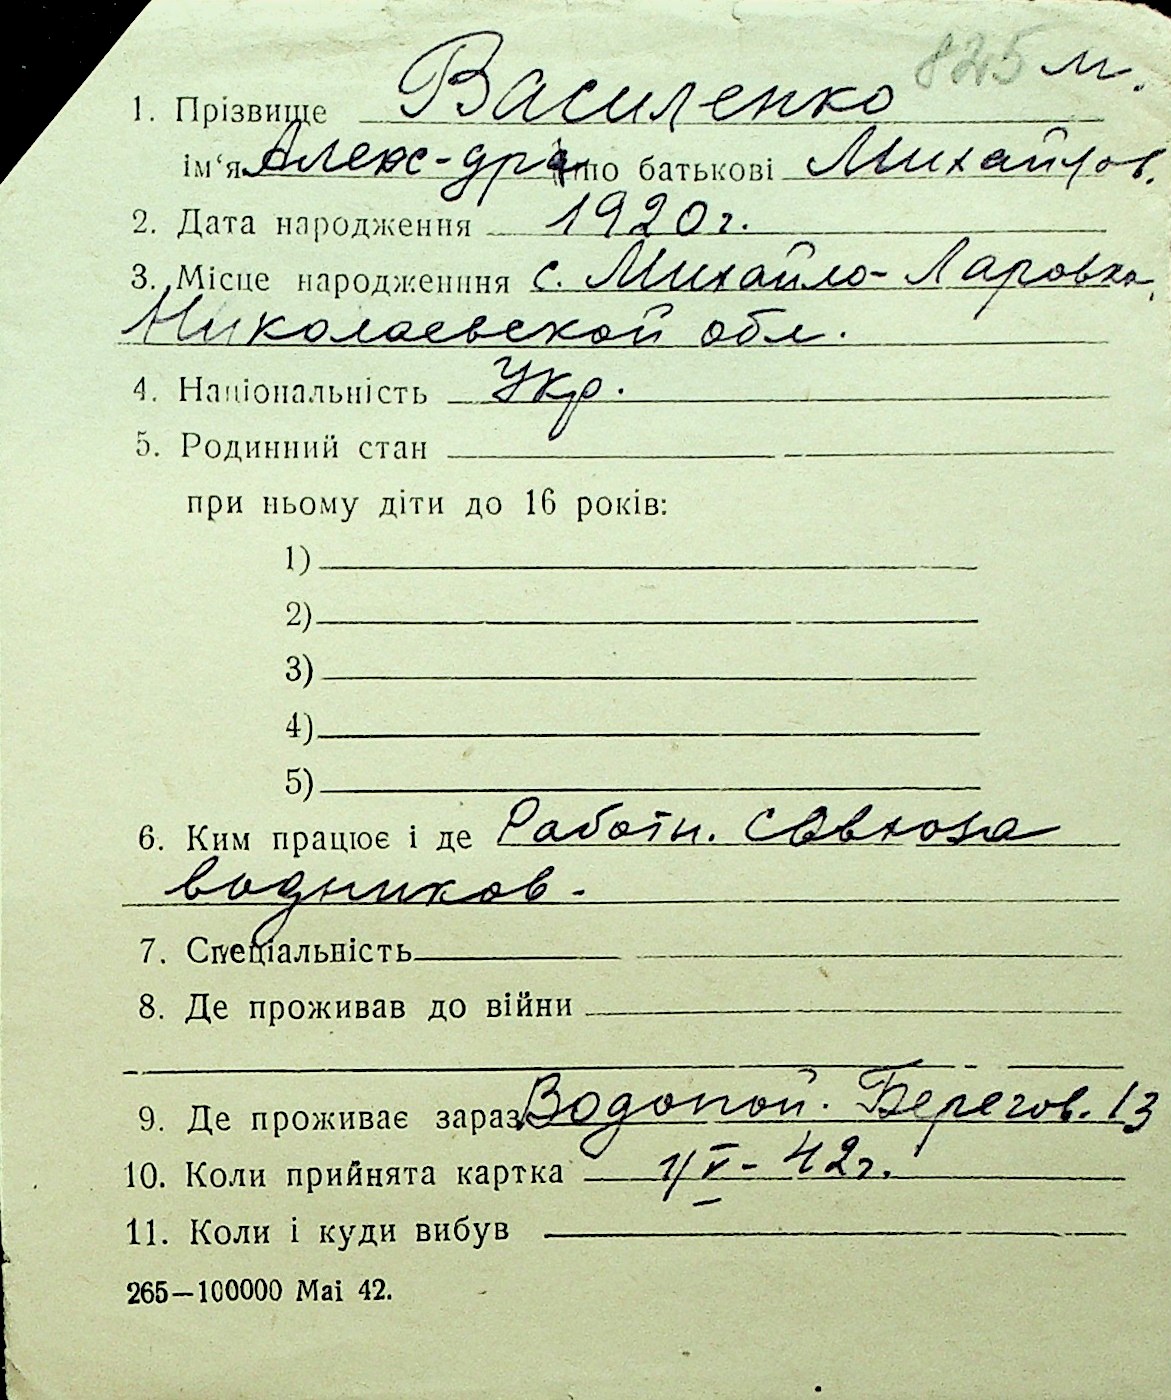 825 м.
1. Прізвище Василенко
ім'я Алекс-дра по батькові Михайлов.
2. Дата народження 1920 г.
3. Місце народженння с. Михайло-Ларовка,
Николаевской обл.
4. Національність Укр.
5. Родинний стан
при ньому діти до 16 років:
1)
2)
3)
4)
5)
6. Ким працює і де Работн. совхоза
водников.
7. Спеціальність
8. Де проживав до війни
9. Де проживає зараз Водопой. Берегов. 13
10. Коли прийнята картка 1/V-42 г.
11. Коли і куди вибув
265—100000 Mai 42.